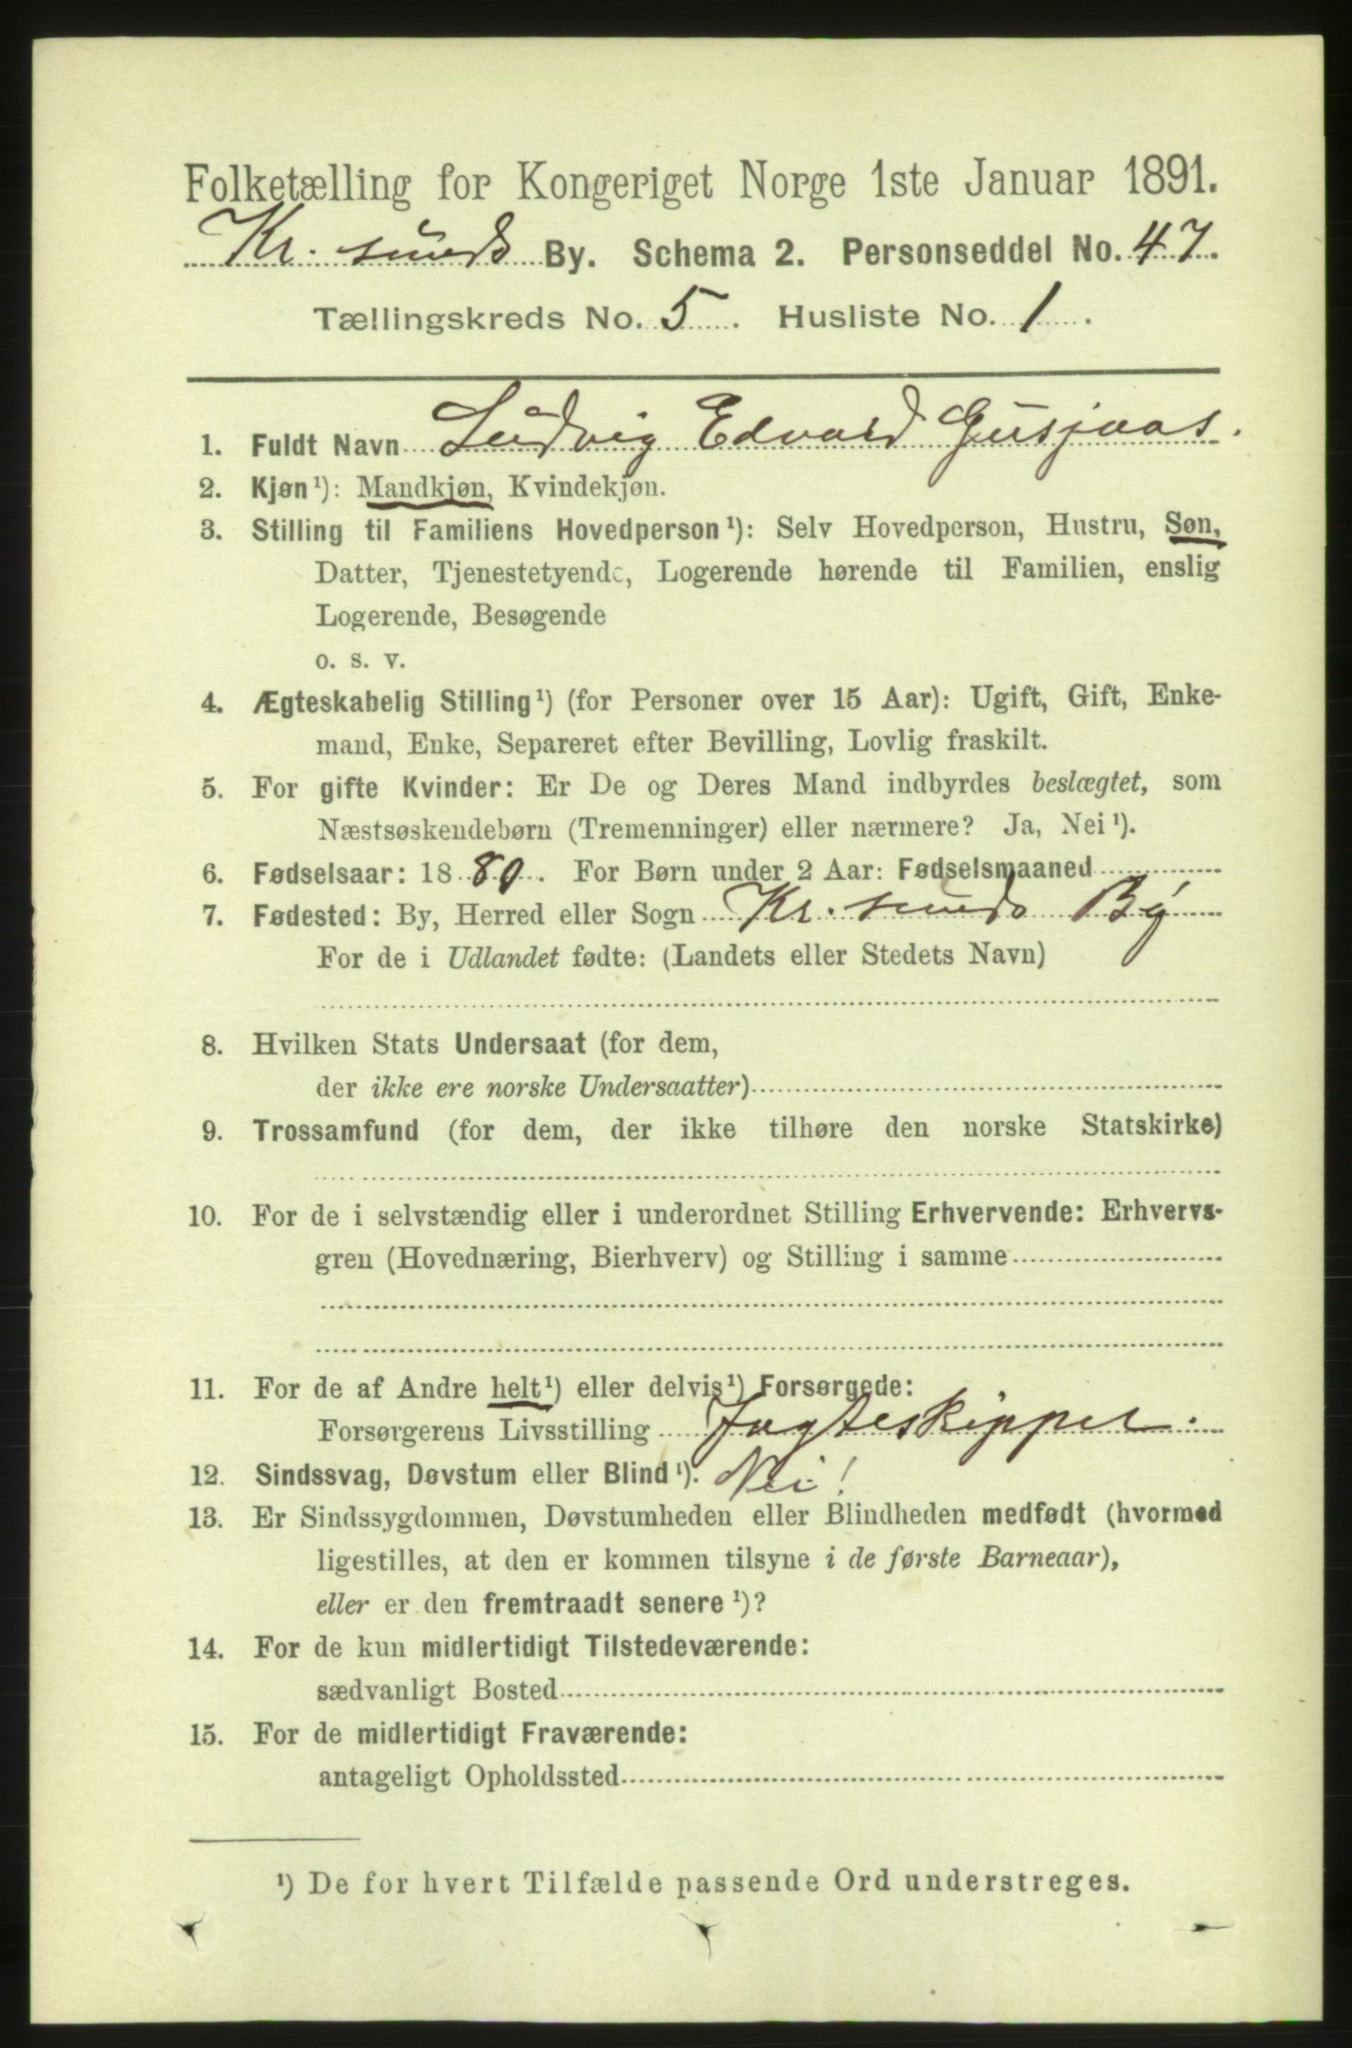 Folketælling for Kongeriget Norge 1ste Januar 1891.
Kr. sunds By. Schema 2. Personseddel No. 47.
Tællingskreds No. 5. Husliste No. 1.
1. Fuldt Navn Ludvig Edvard Gusjaas.
2. Kjøn¹): Mandkjøn, Kvindekjøn.
3. Stilling til Familiens Hovedperson¹): Selv Hovedperson, Hustru, Søn,
Datter, Tjenestetyende, Logerende hørende til Familien, enslig
Logerende, Besøgende
o. s. v.
4. Ægteskabelig Stilling¹) (for Personer over 15 Aar): Ugift, Gift, Enke-
mand, Enke, Separeret efter Bevilling, Lovlig fraskilt.
5. For gifte Kvinder: Er De og Deres Mand indbyrdes beslægtet, som
Næstsøskendebørn (Tremenninger) eller nærmere? Ja, Nei¹).
6. Fødselsaar: 1880. For Børn under 2 Aar: Fødselsmaaned
7. Fødested: By, Herred eller Sogn Kr. sunds By
For de i Udlandet fødte: (Landets eller Stedets Navn)
8. Hvilken Stats Undersaat (for dem,
der ikke ere norske Undersaatter)
9. Trossamfund (for dem, der ikke tilhøre den norske Statskirke)
10. For de i selvstændig eller i underordnet Stilling Erhvervende: Erhvervs-
gren (Hovednæring, Bierhverv) og Stilling i samme
11. For de af Andre helt¹) eller delvis¹) Forsørgede:
Forsørgerens Livsstilling Jagteskipper.
12. Sindssvag, Døvstum eller Blind¹). Nei!
13. Er Sindssygdommen, Døvstumheden eller Blindheden medfødt (hvormed
ligestilles, at den er kommen tilsyne i de første Barneaar),
eller er den fremtraadt senere¹)?
14. For de kun midlertidigt Tilstedeværende:
sædvanligt Bosted
15. For de midlertidigt Fraværende:
antageligt Opholdssted
¹) De for hvert Tilfælde passende Ord understreges.